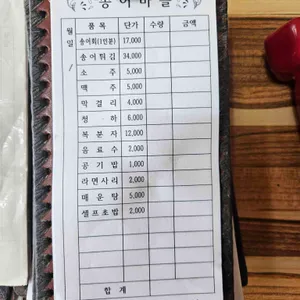 송어마을
월 일 품 목 단가 수량 금액
송어회(1인분) 17,000
송어튀김 34,000
소 주 5,000
맥 주 5,000
막걸리 4,000
청 하 6,000
복분자 12,000
음료수 2,000
공기밥 1,000
라면사리 2,000
매운탕 5,000
셀프초밥 2,000
합 계